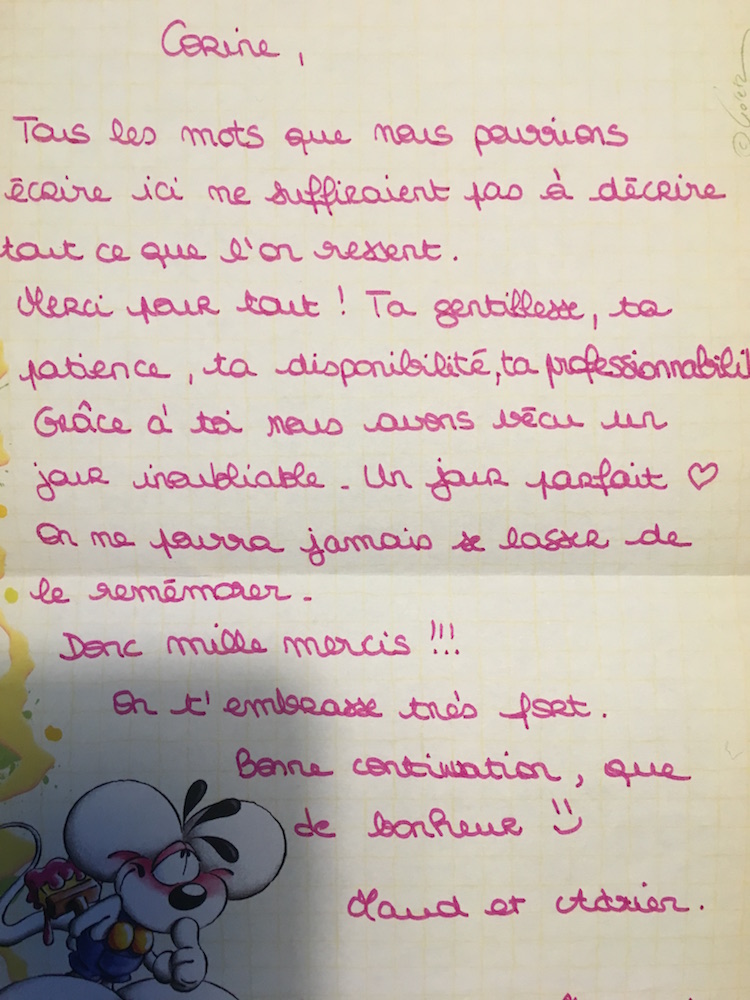 Corine,
Tous les mots que nous pourrions
écrire ici ne suffiraient pas à décrire
tout ce que l'on ressent.
Merci pour tout ! Ta gentillesse, ta
patience, ta disponibilité, ta professionnabilit
Grâce à toi nous avons vécu un
jour inoubliable. Un jour parfait ♡
On ne pourra jamais se lasser de
le remémorer.
Donc mille mercis !!!
On t'embrasse très fort.
Bonne continuation, que
de bonheur :)
Maud et Adrien.